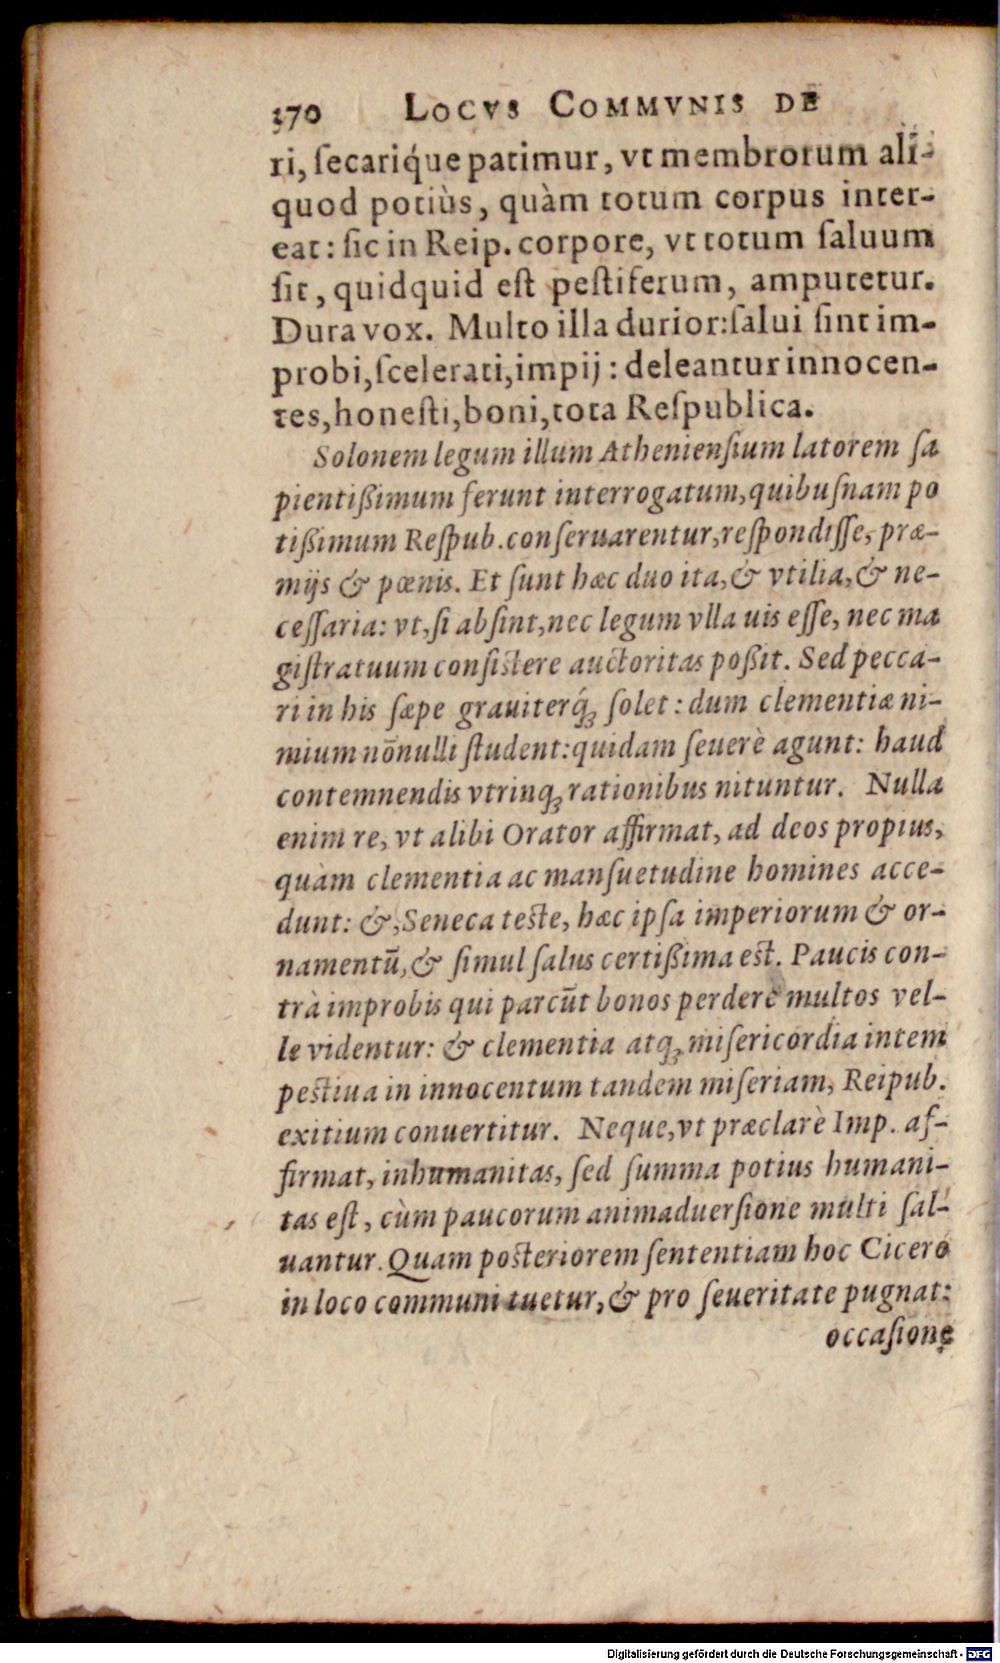 370 LOCVS COMMVNIS DE
ri, ſecariq́ue patimur, vt membrorum ali-
quod potiùs, quàm totum corpus inter-
eat: ſic in Reip. corpore, vt totum ſaluum
ſit, quidquid eſt peſtiferum, amputetur.
Dura vox. Multo illa durior: ſalui ſint im-
probi, ſcelerati, impij: deleantur innocen-
tes, honeſti, boni, tota Reſpublica.
Solonem legum illum Athenienſium latorem ſa
pientißimum ferunt interrogatum, quibuſnam po
tißimum Reſpub. conſeruarentur, reſpondiſſe, præ-
mijs & pœnis. Et ſunt hæc duo ita, & vtilia, & ne-
ceſſaria: vt, ſi abſint, nec legum vlla uis eſſe, nec ma
giſtratuum conſiſtere auctoritas poßit. Sed pecca-
ri in his ſæpe grauiterq́ꝫ ſolet: dum clementiæ ni-
mium nōnulli ſtudent: quidam ſeuerè agunt: haud
contemnendis vtrinqꝫ rationibus nituntur. Nulla
enim re, vt alibi Orator affirmat, ad deos propius,
quàm clementia ac manſuetudine homines acce-
dunt: &, Seneca teſte, hæc ipſa imperiorum & or-
namentū, & ſimul ſalus certißima eſt. Paucis con-
trà improbis qui parcūt bonos perdere multos vel-
le videntur: & clementia atqꝫ miſericordia intem
peſtiua in innocentum tandem miſeriam, Reipub.
exitium conuertitur. Neque, vt præclarè Imp. af-
firmat, inhumanitas, ſed ſumma potius humani-
tas eſt, cùm paucorum animaduerſione multi ſal-
uantur. Quam poſteriorem ſententiam hoc Cicero
in loco communi tuetur, & pro ſeueritate pugnat:
occaſione
Digitalisierung gefördert durch die Deutsche Forschungsgemeinschaft - DFG